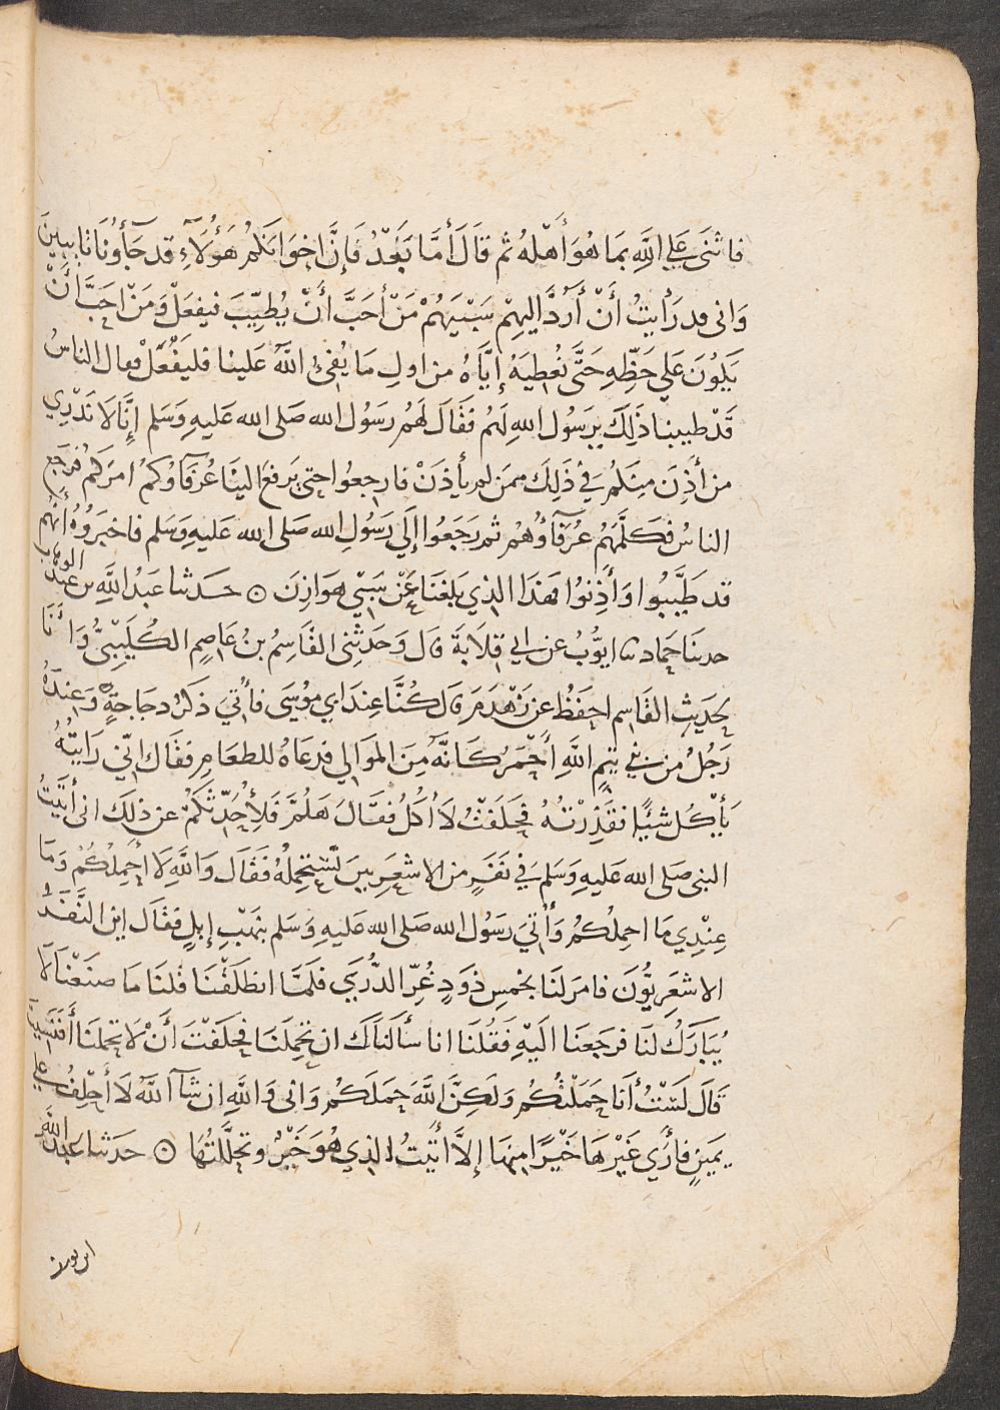 فاثنَى علَى اللَّهِ بمَا هُوَ أَهْلهُ ثم قاَلَ أَمَّا بَعْدُ فَإِنَّ اخوَانكُم هَؤُلَآءِ قد جَآؤُنَا تايبينَ
وَانى قد رَأَيتُ أَنْ أَرُدَّ اليهِمْ سَبْيَهُمْ مَنْ أَحَبَّ أَنْ يُطيِّبَ فليفعَلْ وَمَنْ احَبَّ أَنْ
يَكُونَ عَلى حَظِّهِ حَتَّى نُعْطِيَهُ إِيَّاهُ من اولِ مَا يُفىُ اللَّهُ عَلينا فليَفْعَلْ فقال الناسُ
قَدْ طيبنا ذَلِكَ يرَسُول اللهِ لَهُم فَقَالَ لَهُم رَسُول الله صَلى الله عَليهِ وَسَلم إِنَّا لَا نَدْرِي
من أَذِنَ مِنكُم فِي ذَلِكَ ممن لم يأذَنْ فارجعُوا حتى يَرفعَ الينَا عُرَفَآوُكمُ امرَكُم فرَجَع
الناسُ فكَلَّمَهُم عُرَفَآؤُهُمْ ثم رَجَعُوا إلَى رَسُولِ الله صَلى الله عَليهِ وَسَلم فاخبَرُوُهُ أَنَّهُم
قد طَيَّبُوا وَأَذِنُوا فهَذَا الذِي بَلغَنَا عَنْ سَبْي هوَازِنَ ۝ حَدثنا عَبْدُ اللَّهِ بن عَبْد الوهاب
حدثنَا حَماد ثنا ايوُّبُ عن ابي قِلَابَةَ قال وَحَدثنِى القَاسِمُ بنُ عَاصِم الكُلَيْبِىُّ وَأَنَا
لحَدِيث القَاسِم احفَظُ عن زَهْدَمَ قال كُنَّا عِندَ ابي مُوسَى فأُتيَ ذكرُ دجَاجَةٍ وَعِندَهُ
رَجُلٌ من بني تيمِ اللَّهِ أَحْمَرُ كَانَّهُ مِنَ الموَالي فدعَاهُ للطعَامِ فقَال انّي رَايتُهُ
يَأْكُل شئًا فقَذِرْتهُ فحَلَفْتُ لَا اُكُلُ فقَالَ هَلُمَّ فَلِأُحَدِّثكُمْ عن ذلِكَ انى أَتَيْتُ
النبى صَلى الله عَليهِ وَسَلم في نَفَرٍ من الاشعَرِيينَ نَسْتَحْمِلُهُ فَقَال وَاللَّهِ لَا أَحْمِلُكُمْ وَمَا
عِنْدِي مَا احمِلكُمْ وَأُتيَ رَسُول الله صَلى الله عَليهِ وَسَلم بنَهْبِ إبلٍ فقَال اين النَّفَرُ
الاشعَرِيُّونَ فامرَ لنَا بخَمسِ ذَوْدٍ غُرِّ الذُّرَي فلَمَّا انطلَقْنَا قلنَا مَا صَنَعْنَا لَا
يُبَارَكُ لنَا فرجَعنَا الَيْهِ فَقُلنَا انا سأَلناكَ ان تَحْمِلَنَا فحَلَفْتَ أَنْ لَا تحملنَا أَفَنَسِيتَ
قَال لَسْتُ أَنَا حَمَلْتُكُم وَلَكِنَّ اللَّهَ حَمَلَكُم وَانى وَاللَّهِ ان شآ اللَّهُ لَا أَحْلِفُ علَى
يمَينٍ فأَرَى غَيْرَهَا خَيْرًا مِنهَا إلاَّ أَتَيتُ الذِي هُوَ خَيْرٌ وتحَلَّلْتُهَا ۝ حدَثنا عَبْد اللَّهِ
ابن يوسف